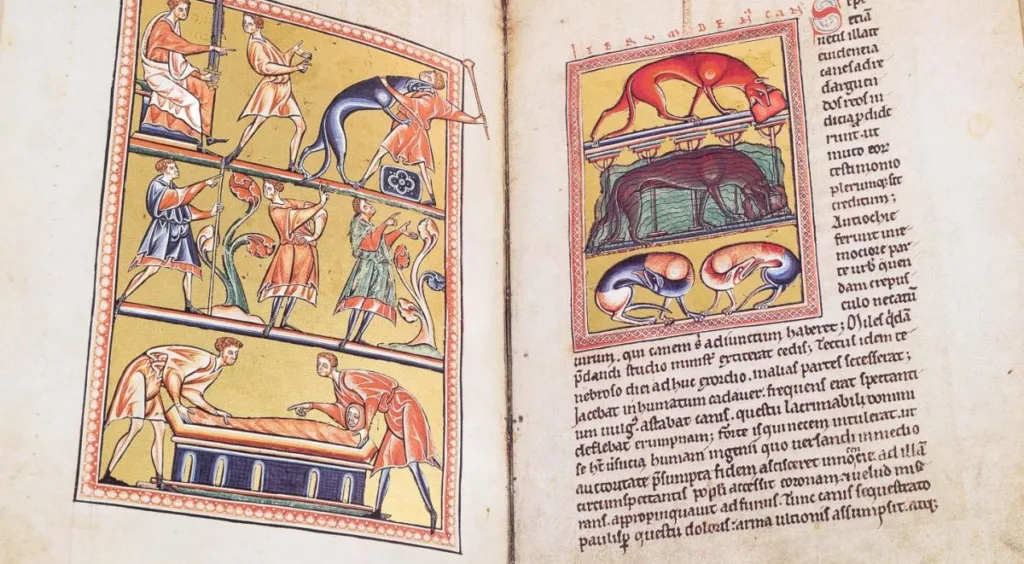 ITERUM DE CAN
Sepe
eciā
necis illate
euidencia
canes adre
darguen
dos reos in
dicia ꝓdide
runt · ut
muto eor
testimonio
plerumqꝫ sit
creditum;
Antiochie
ferunt inre
mociore par
te urb quen
dam crepus
culo necatū
uirum, qui canem s̄ adiunctum haberet; Miles qdā
p̄dandi studio extiterat cedis; Tectus idem te
nebroso diei adhuc exordio, in alias partes secesserat;
Iacebat inhumatum cadauer, frequens erat spectanti
um uulgꝰ astabat canis, questu lacrimabili domini
deflebat erumpnam; forte is qui necem intulerat, ut
se h̄t usucia humani ingenii quo uersandi in medio
auctoritate p̄sumpta fidem ascisceret ad illā
circumspectantis ppli accessit coronam, & uelud mise
rans, appropinquauit ad funus. Tunc canis sequestrato
paulisꝑ questu doloris: arma ultionis assumpsit, atqꝫ